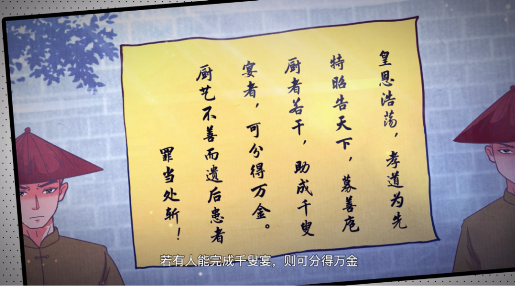 皇恩浩荡，孝道为先
特昭告天下，募善庖
厨者若干，助成千叟
宴者，可分得万金。
厨艺不善而遗后患者
罪当处斩！
若有人能完成千叟宴，则可分得万金